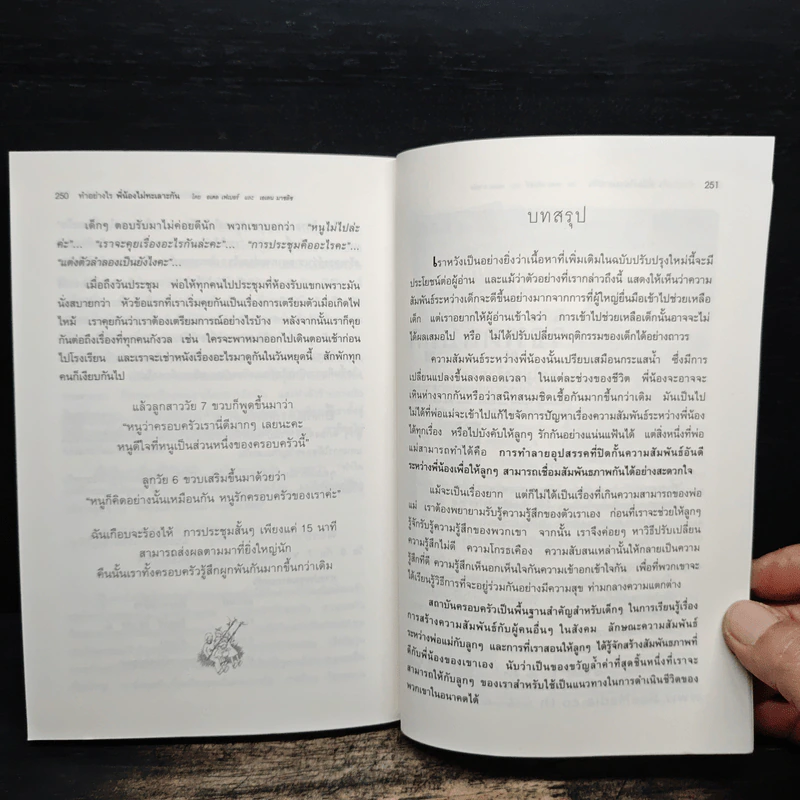 250 ทำอย่างไร พี่น้องไม่ทะเลาะกัน โดย อเดล เฟเบอร์ และ เอเลน มาซลิช
เด็กๆ ตอบรับมาไม่ค่อยดีนัก พวกเขาบอกว่า “หนูไม่ไปล่ะ
ค่ะ”... “เราจะคุยเรื่องอะไรกันล่ะคะ”... “การประชุมคืออะไรคะ”...
“แต่งตัวลำลองเป็นยังไงคะ”...
เมื่อถึงวันประชุม พ่อให้ทุกคนไปประชุมที่ห้องรับแขกเพราะมัน
นั่งสบายกว่า หัวข้อแรกที่เราเริ่มคุยกันเป็นเรื่องการเตรียมตัวเมื่อเกิดไฟ
ไหม้ เราคุยกันว่าเราต้องเตรียมการณ์อย่างไรบ้าง หลังจากนั้นเราก็คุย
กันต่อถึงเรื่องที่ทุกคนกังวล เช่น ใครจะพาหมาออกไปเดินตอนเช้าก่อน
ไปโรงเรียน และเราจะเช่าหนังเรื่องอะไรมาดูกันในวันหยุดนี้ สักพักทุก
คนก็เงียบกันไป
แล้วลูกสาววัย 7 ขวบก็พูดขึ้นมาว่า
“หนูว่าครอบครัวเรานี่ดีมากๆ เลยนะคะ
หนูดีใจที่หนูเป็นส่วนหนึ่งของครอบครัวนี้”
ลูกวัย 6 ขวบเสริมขึ้นมาด้วยว่า
“หนูก็คิดอย่างนั้นเหมือนกัน หนูรักครอบครัวของเราค่ะ”
ฉันเกือบจะร้องไห้ การประชุมสั้นๆ เพียงแค่ 15 นาที
สามารถส่งผลตามมาที่ยิ่งใหญ่นัก
คืนนั้นเราทั้งครอบครัวรู้สึกผูกพันกันมากขึ้นกว่าเดิม
251
บทสรุป
เราหวังเป็นอย่างยิ่งว่าเนื้อหาที่เพิ่มเติมในฉบับปรับปรุงใหม่นี้จะมี
ประโยชน์ต่อผู้อ่าน และแม้ว่าตัวอย่างที่เรากล่าวถึงนี้ แสดงให้เห็นว่าความ
สัมพันธ์ระหว่างเด็กจะดีขึ้นอย่างมากจากการที่ผู้ใหญ่ยื่นมือเข้าไปช่วยเหลือ
เด็ก แต่เราอยากให้ผู้อ่านเข้าใจว่า การเข้าไปช่วยเหลือเด็กนั้นอาจจะไม่
ได้ผลเสมอไป หรือ ไม่ได้ปรับเปลี่ยนพฤติกรรมของเด็กได้อย่างถาวร
ความสัมพันธ์ระหว่างพี่น้องนั้นเปรียบเสมือนกระแสน้ำ ซึ่งมีการ
เปลี่ยนแปลงขึ้นลงตลอดเวลา ในแต่ละช่วงของชีวิต พี่น้องจะอาจจะ
เดินห่างจากกันหรือว่าสนิทสนมชิดเชื้อกันมากขึ้นกว่าเดิม มันเป็นไป
ไม่ได้ที่พ่อแม่จะเข้าไปแก้ไขจัดการปัญหาเรื่องความสัมพันธ์ระหว่างพี่น้อง
ได้ทุกเรื่อง หรือไปบังคับให้ลูกๆ รักกันอย่างแน่นแฟ้นได้ แต่สิ่งหนึ่งที่พ่อ
แม่สามารถทำได้คือ การทำลายอุปสรรคที่ปิดกั้นความสัมพันธ์อันดี
ระหว่างพี่น้องเพื่อให้ลูกๆ สามารถเชื่อมสัมพันธภาพกันได้อย่างสะดวกใจ
แม้จะเป็นเรื่องยาก แต่ก็ไม่ได้เป็นเรื่องที่เกินความสามารถของพ่อ
แม่ เราต้องพยายามรับรู้ความรู้สึกของตัวเราเอง ก่อนที่เราจะช่วยให้ลูกๆ
รู้จักรับรู้ความรู้สึกของพวกเขา จากนั้น เราจึงค่อยๆ หาวิธีปรับเปลี่ยน
ความรู้สึกไม่ดี ความโกรธเคือง ความสับสนเหล่านั้นให้กลายเป็นความ
รู้สึกที่ดี ความรู้สึกเห็นอกเห็นใจกันความเข้าอกเข้าใจกัน เพื่อที่พวกเขาจะ
ได้เรียนรู้วิธีการที่จะอยู่ร่วมกันอย่างมีความสุข ท่ามกลางความแตกต่าง
สถาบันครอบครัวเป็นพื้นฐานสำคัญสำหรับเด็กๆ ในการเรียนรู้เรื่อง
การสร้างความสัมพันธ์กับผู้คนอื่นๆ ในสังคม ลักษณะความสัมพันธ์
ระหว่างพ่อแม่กับลูกๆ และการที่เราสอนให้ลูกๆ ได้รู้จักสร้างสัมพันธภาพที่
ดีกับพี่น้องของเขาเอง นับว่าเป็นของขวัญล้ำค่าที่สุดชิ้นหนึ่งที่เราจะ
สามารถให้กับลูกๆ ของเราสำหรับใช้เป็นแนวทางในการดำเนินชีวิตของ
พวกเขาในอนาคตได้